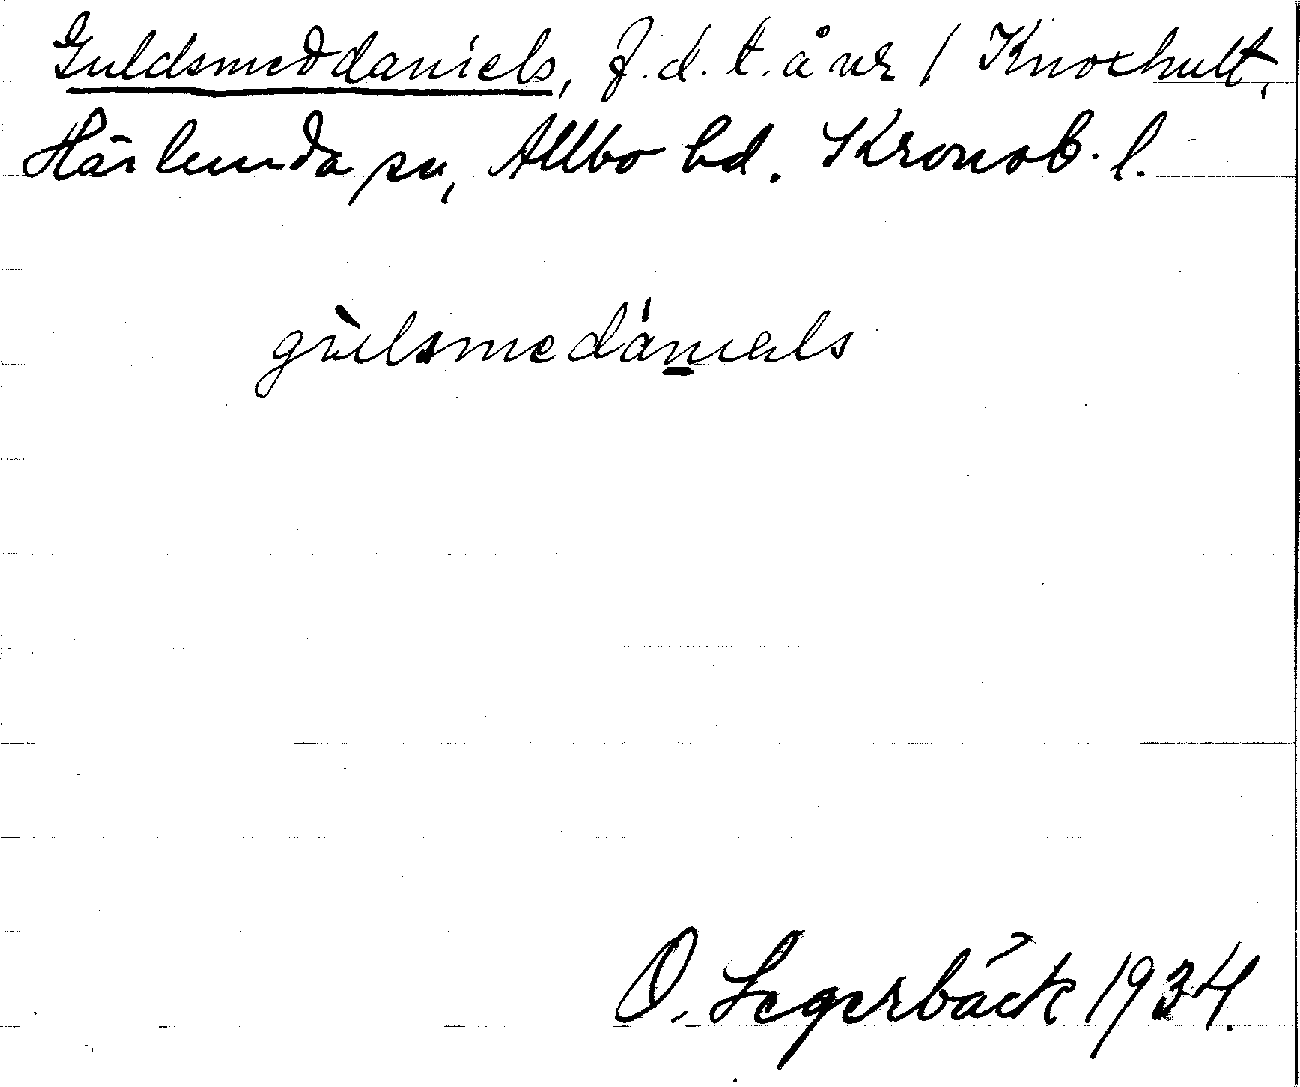 Guldsmeddaniels, f.d.t. å nr 1 Knoxhult,
Härlunda sn, Allbo hd. Kronob. l.
gùlsmedániels
O. Segerbäck 1934.